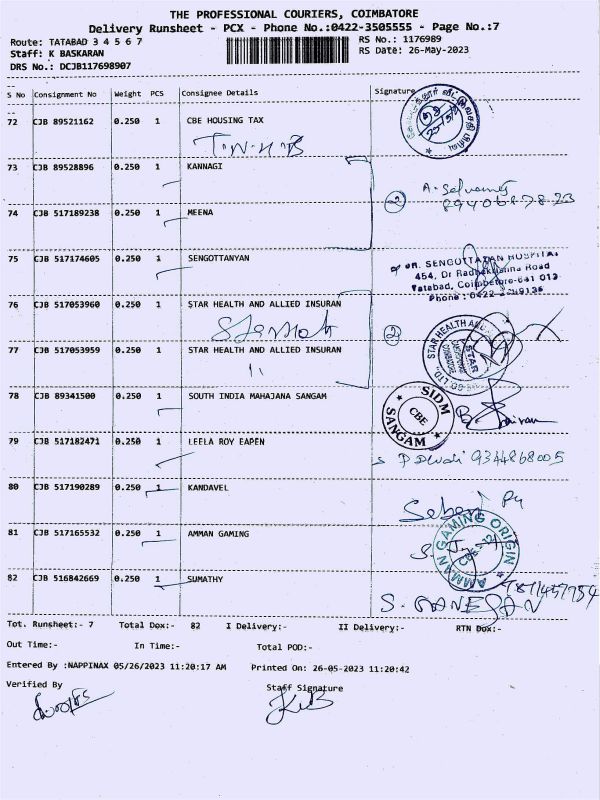 THE PROFESSIONAL COURIERS, COIMBATORE
Delivery Runsheet - PCX - Phone No.:0422-3505555 - Page No.:7
Route: TATABAD 3 4 5 6 7
RS No.: 1176989
Staff: K BASKARAN
RS Date: 26-May-2023
DRS No.: DCJB117698907
S No Consignment No Weight PCS Consignee Details Signature
72 CJB 89521162 0.250 1 CBE HOUSING TAX
T.N.H.B
73 CJB 89528896 0.250 1 KANNAGI
2
74 CJB 517189238 0.250 1 MEENA
75 CJB 517174605 0.250 1 SENGOTTANYAN
DR. SENGOTTAIAN HOSPITAL
454, Dr Radhakrishna Road
Tatabad, Coimbatore-641 012
Phone : 0422
76 CJB 517053960 0.250 1 STAR HEALTH AND ALLIED INSURAN
2
77 CJB 517053959 0.250 1 STAR HEALTH AND ALLIED INSURAN
"
STAR HEALTH AND
STAR
78 CJB 89341500 0.250 1 SOUTH INDIA MAHAJANA SANGAM
SIDM
CBE
SANGAM
79 CJB 517182471 0.250 1 LEELA ROY EAPEN
9344868005
80 CJB 517190289 0.250 1 KANDAVEL
81 CJB 517165532 0.250 1 AMMAN GAMING
AMMAN GAMING ORIGIN
CBE - 12
82 CJB 516842669 0.250 1 SUMATHY
S. GANESAN
Tot. Runsheet:- 7 Total Dox:- 82 I Delivery:- II Delivery:- RTN Dox:-
Out Time:- In Time:- Total POD:-
Entered By :NAPPINAX 05/26/2023 11:20:17 AM Printed On: 26-05-2023 11:20:42
Verified By Staff Signature